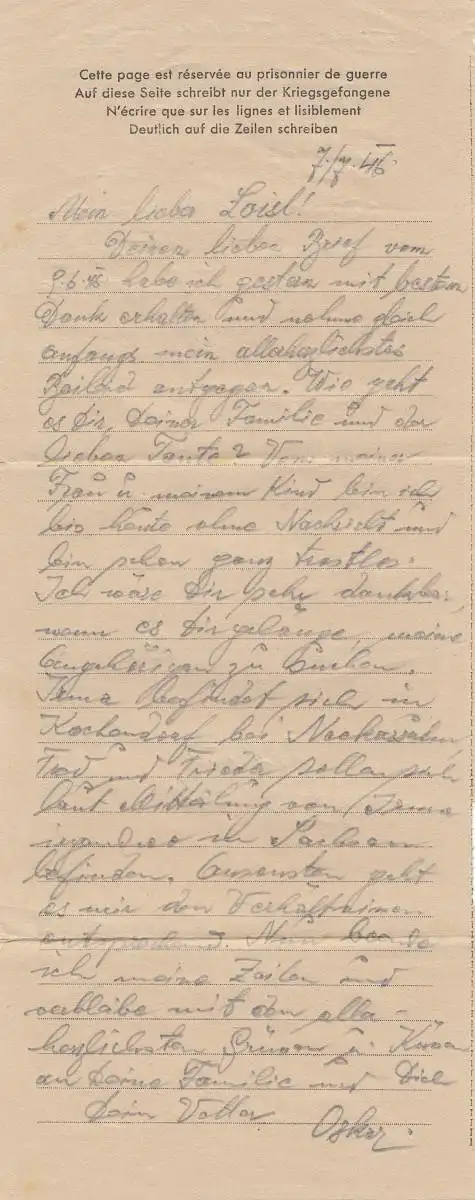 Cette page est réservée au prisonnier de guerre
Auf diese Seite schreibt nur der Kriegsgefangene
N'écrire que sur les lignes et lisiblement
Deutlich auf die Zeilen schreiben
7./7. 46.
Mein lieber Loisl!
Deinen lieben Brief vom
9.6.46 habe ich gestern mit bestem
Dank erhalten und nehme doch
anfangs mein allerherzlichstes
Beileid entgegen. Wie geht
es Dir, Deiner Familie und der
lieben Tante? Von meiner
Frau u. meinem Kind bin ich
bis heute ohne Nachricht und
bin schon ganz trostlos.
Ich wäre Dir sehr dankbar,
wenn es Dir gelänge, meine
Angehörigen zu suchen.
Irma befindet sich in
Kochendorf bei
und Frieda sollen sich
laut Mitteilung von Irma
irgendwo in Sachsen
befinden. Ansonsten geht
es mir den Verhältnissen
entsprechend. Nun beende
ich meine Zeilen und
verbleibe mit den aller-
herzlichsten Grüssen u. Küssen
an Deine Familie und Dich
Dein Vetter
Oskar.